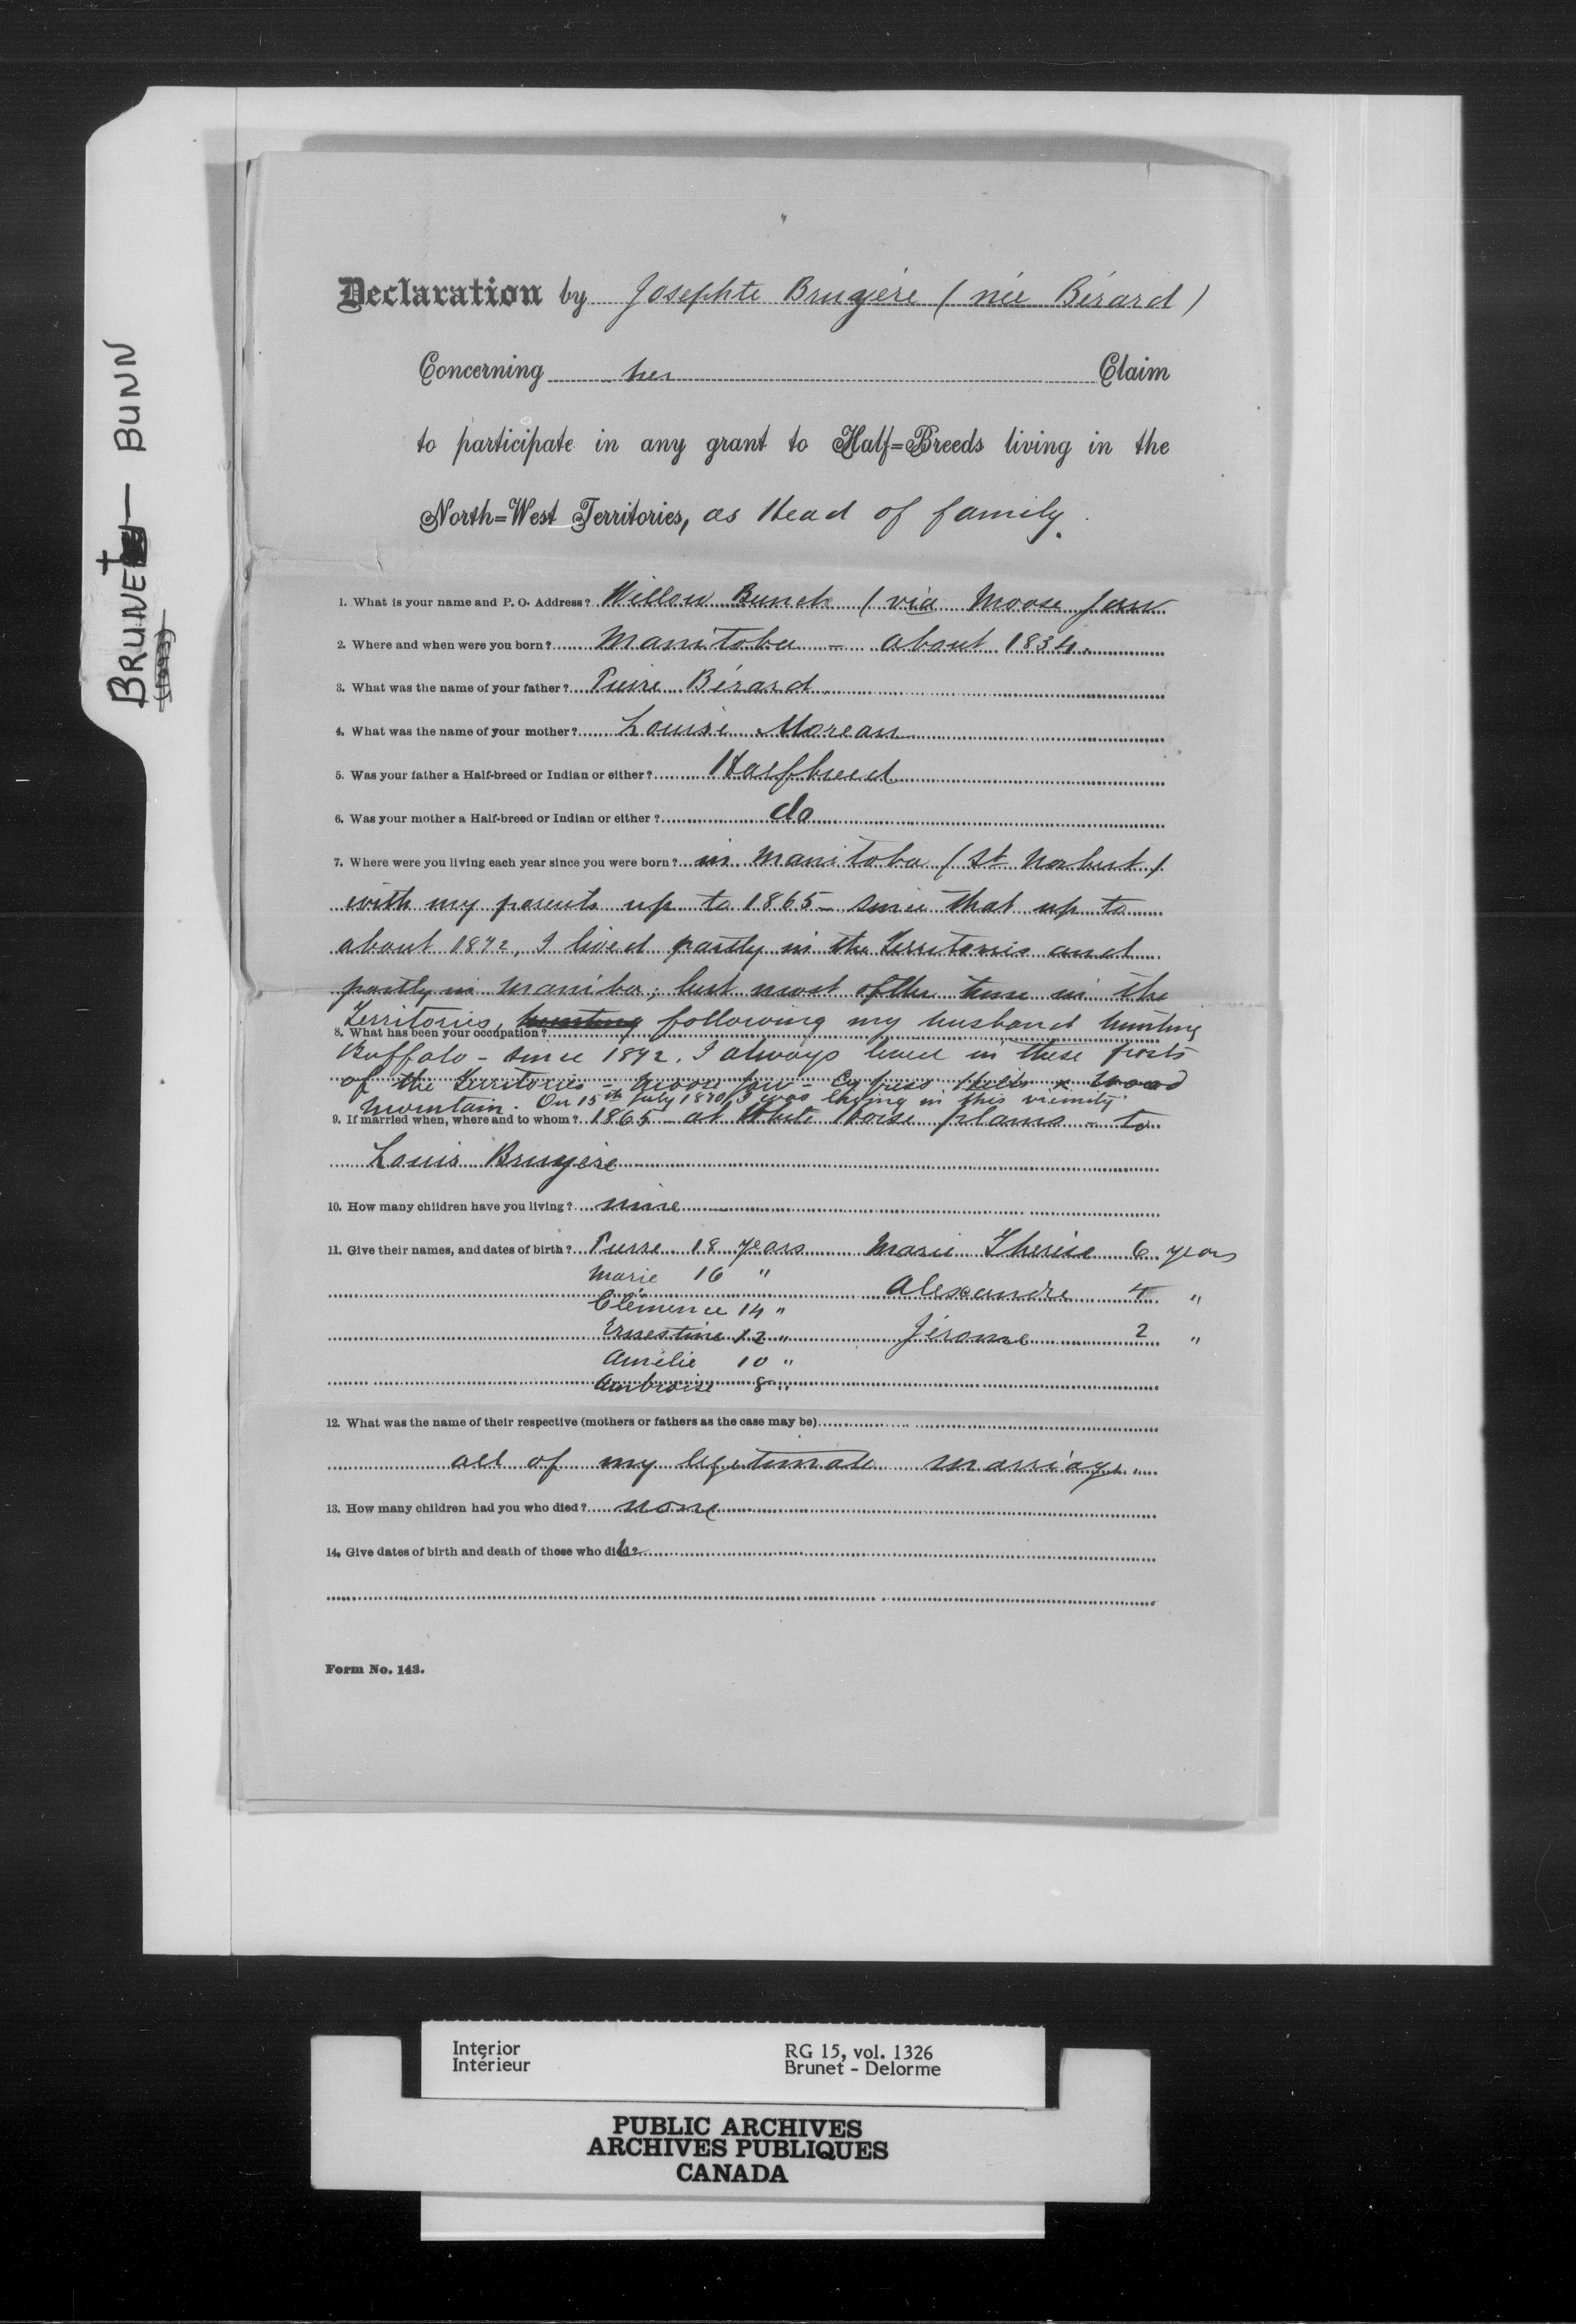 BRUNET — BUNN
Declaration by Josephte Bruyére (née Bérard)
Concerning her Claim
to participate in any grant to Half=Breeds living in the
North=West Territories, as Head of family.
1. What is your name and P. O. Address? Willow Bunch (via Moose Jaw
2. Where and when were you born? Manitoba — about 1834.
3. What was the name of your father? Pierre Bérard
4. What was the name of your mother? Louise Moreau
5. Was your father a Half-breed or Indian or either? Halfbreed
6. Was your mother a Half-breed or Indian or either? do
7. Where were you living each year since you were born? in Manitoba (St Norbert)
with my parents up to 1865 – since that up to
about 1872, I lived partly in the Territories and
partly in Maniba; but most of the time in the
Territories, hunting following my husband hunting
8. What has been your occupation?
Buffalo – since 1872, I always lived in these parts
of the Territories – Moose Jaw – Cypress Hills & Wood
Mountain. On 15th July 1870, I was living in this vicinity.
9. If married when, where and to whom? 1865 – at White horse plains – to
Louis Bruyére
10. How many children have you living? nine
11. Give their names, and dates of birth? Pierre 18 years Marie Therése 6 years
Marie 16 "
Alexandre 4 "
Clémence 14 "
Ernestine 12 " Jérome 2 "
Amélie 10 "
Ambroise 8 "
12. What was the name of their respective (mothers or fathers as the case may be)
all of my legitimate marriage.
13. How many children had you who died? none
14. Give dates of birth and death of those who died?
Form No. 143.
Interior RG 15, vol. 1326
Intérieur Brunet - Delorme
PUBLIC ARCHIVES
ARCHIVES PUBLIQUES
CANADA